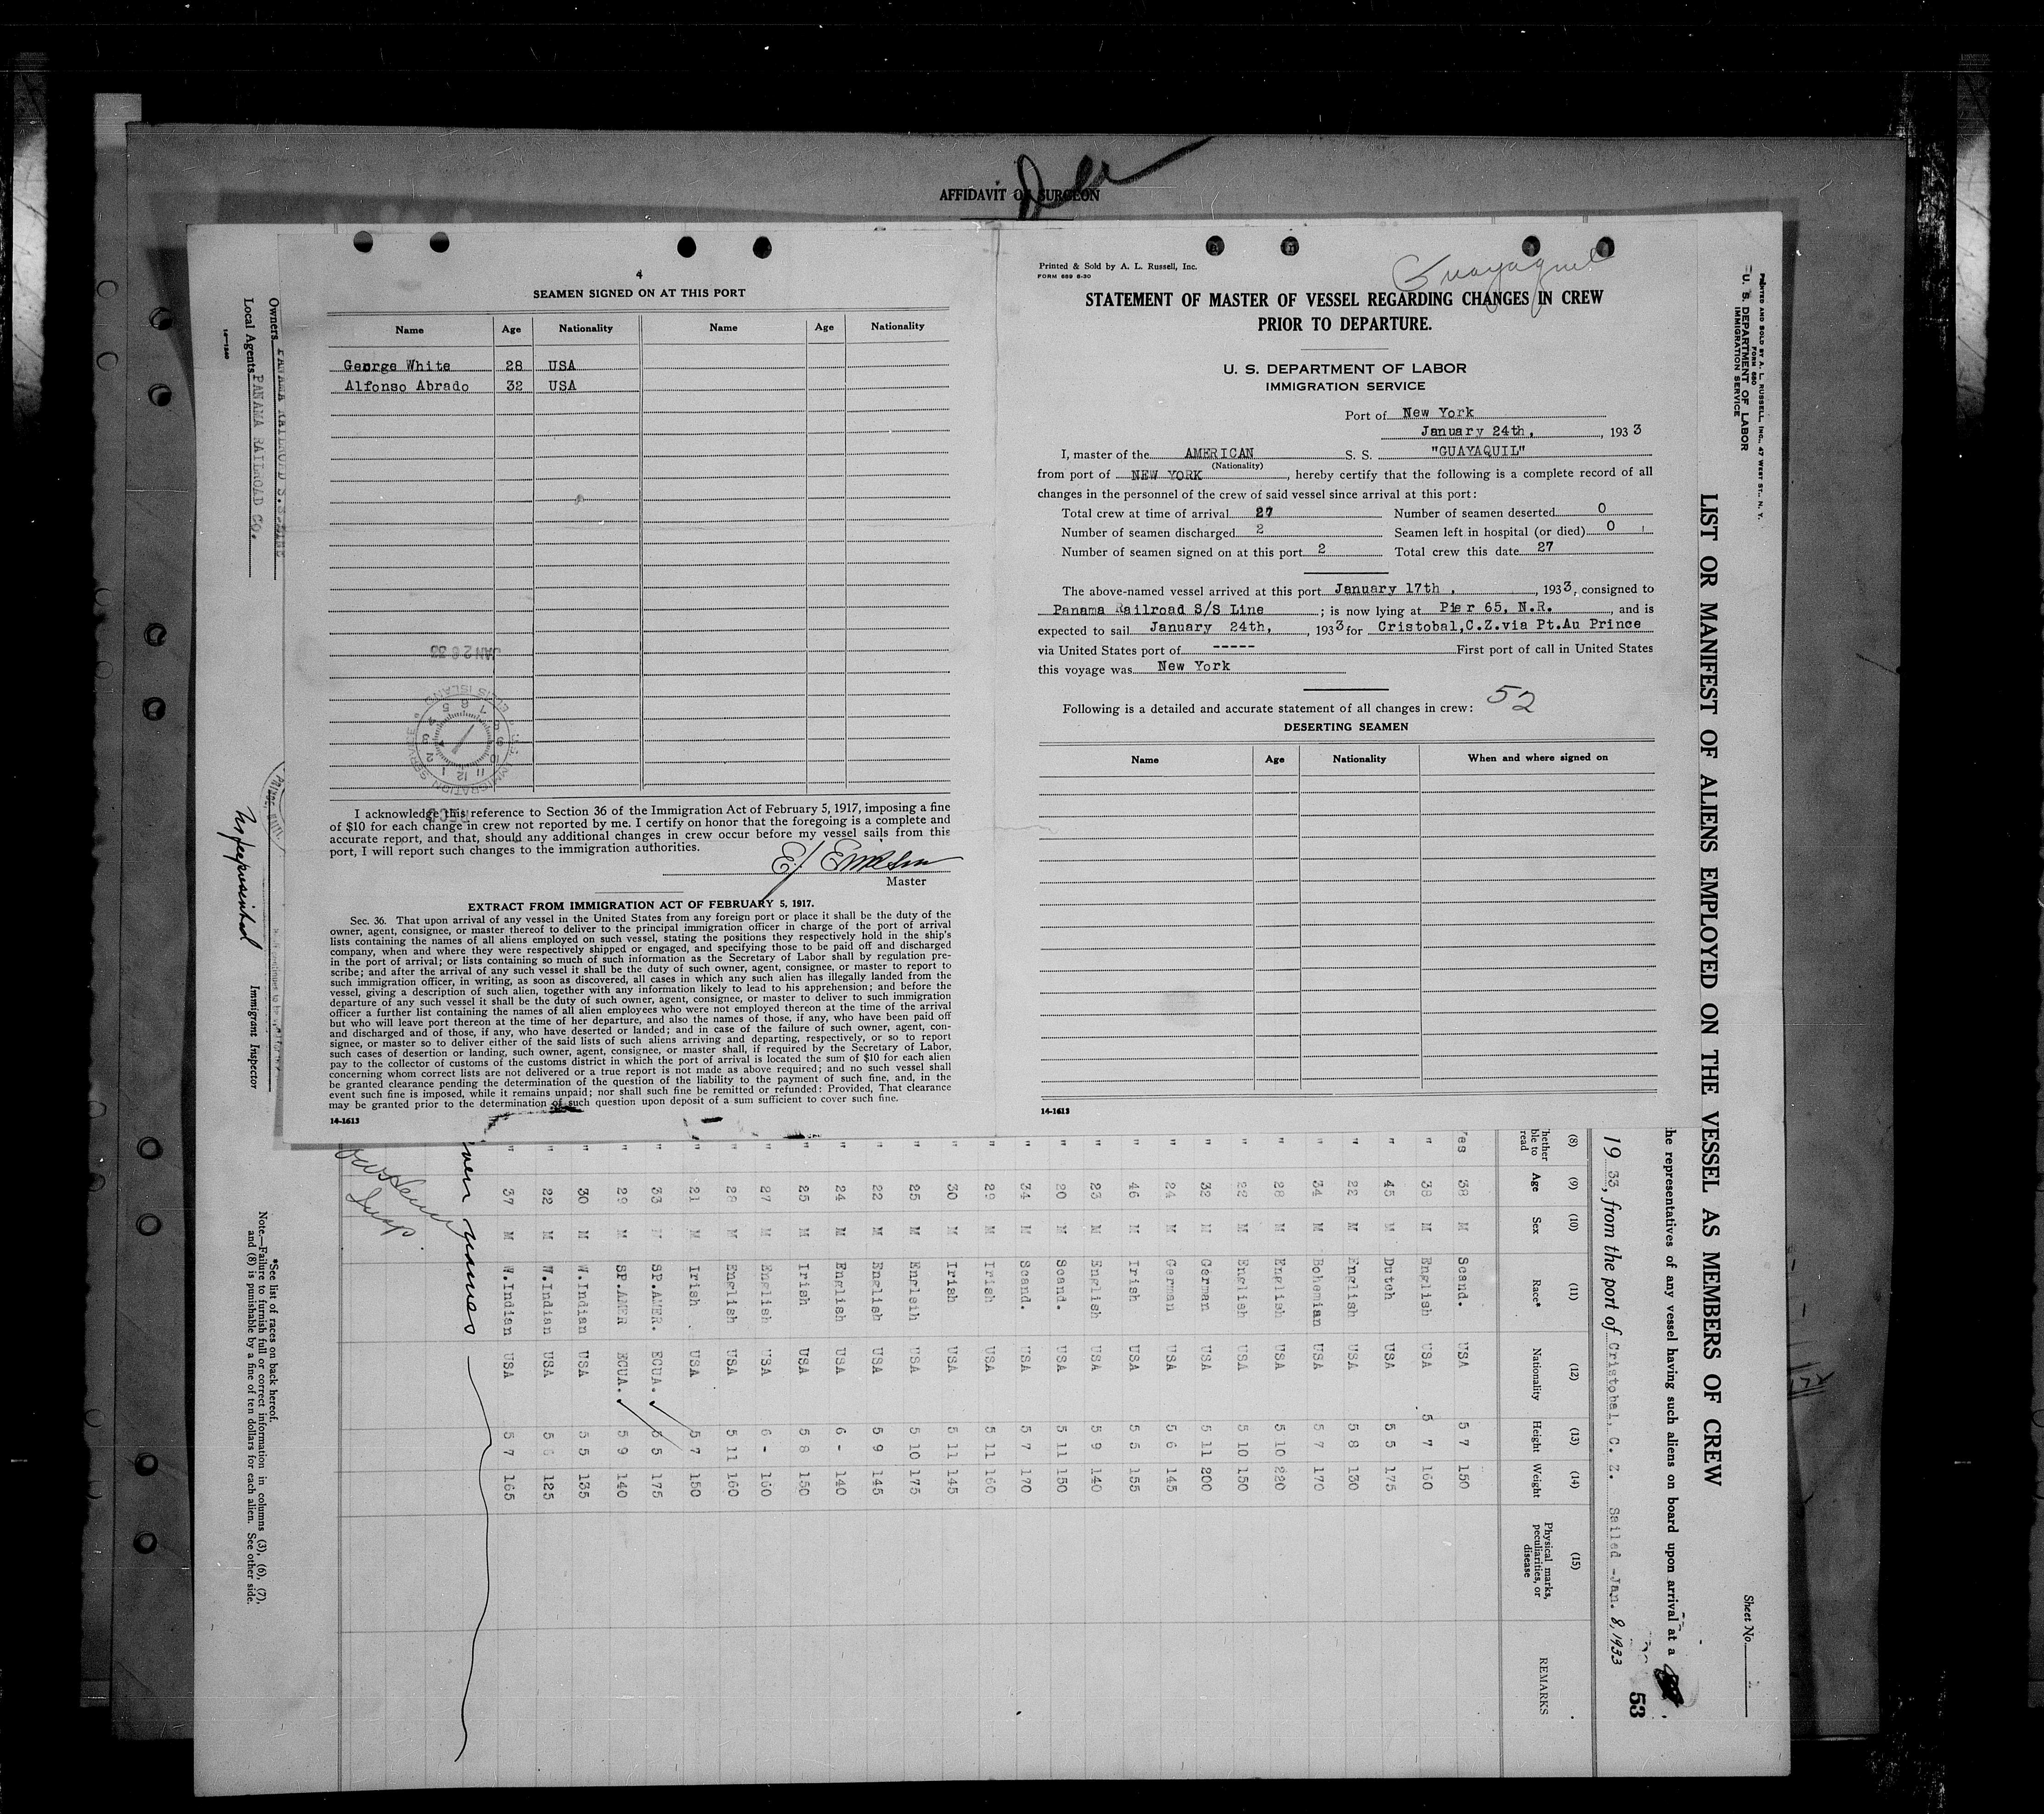 AFFIDAVIT OF SURGEON
4
SEAMEN SIGNED ON AT THIS PORT
Name Age Nationality Name Age Nationality
George White 28 USA
Alfonso Abrado 32 USA
JAN 26 33
U.S. IMMIGRATION SERVICE ELLIS ISLAND
I acknowledge this reference to Section 36 of the Immigration Act of February 5, 1917, imposing a fine
of $10 for each change in crew not reported by me. I certify on honor that the foregoing is a complete and
accurate report, and that, should any additional changes in crew occur before my vessel sails from this
port, I will report such changes to the immigration authorities.
Master
EXTRACT FROM IMMIGRATION ACT OF FEBRUARY 5, 1917.
Sec. 36. That upon arrival of any vessel in the United States from any foreign port or place it shall be the duty of the
owner, agent, consignee, or master thereof to deliver to the principal immigration officer in charge of the port of arrival
lists containing the names of all aliens employed on such vessel, stating the positions they respectively hold in the ship's
company, when and where they were respectively shipped or engaged, and specifying those to be paid off and discharged
in the port of arrival; or lists containing so much of such information as the Secretary of Labor shall by regulation pre-
scribe; and after the arrival of any such vessel it shall be the duty of such owner, agent, consignee, or master to report to
such immigration officer, in writing, as soon as discovered, all cases in which any such alien has illegally landed from the
vessel, giving a description of such alien, together with any information likely to lead to his apprehension; and before the
departure of any such vessel it shall be the duty of such owner, agent, consignee, or master to deliver to such immigration
officer a further list containing the names of all alien employees who were not employed thereon at the time of the arrival
but who will leave port thereon at the time of her departure, and also the names of those, if any, who have been paid off
and discharged and of those, if any, who have deserted or landed; and in case of the failure of such owner, agent, con-
signee, or master so to deliver either of the said lists of such aliens arriving and departing, respectively, or so to report
such cases of desertion or landing, such owner, agent, consignee, or master shall, if required by the Secretary of Labor,
pay to the collector of customs of the customs district in which the port of arrival is located the sum of $10 for each alien
concerning whom correct lists are not delivered or a true report is not made as above required; and no such vessel shall
be granted clearance pending the determination of the question of the liability to the payment of such fine, and, in the
event such fine is imposed, while it remains unpaid; nor shall such fine be remitted or refunded: Provided, That clearance
may be granted prior to the determination of such question upon deposit of a sum sufficient to cover such fine.
14-1613
Printed & Sold by A. L. Russell, Inc.
FORM 689 6-30
Guayaquil
STATEMENT OF MASTER OF VESSEL REGARDING CHANGES IN CREW
PRIOR TO DEPARTURE.
U. S. DEPARTMENT OF LABOR
IMMIGRATION SERVICE
Port of New York
January 24th, , 1933
I, master of the AMERICAN S. S. "GUAYAQUIL"
(Nationality)
from port of NEW YORK , hereby certify that the following is a complete record of all
changes in the personnel of the crew of said vessel since arrival at this port:
Total crew at time of arrival 27 Number of seamen deserted 0
Number of seamen discharged 2 Seamen left in hospital (or died) 0
Number of seamen signed on at this port 2 Total crew this date 27
The above-named vessel arrived at this port January 17th , , 1933, consigned to
Panama Railroad S/S Line ; is now lying at Pier 65, N.R. , and is
expected to sail January 24th, , 1933 for Cristobal,C.Z.via Pt.Au Prince
via United States port of ----- First port of call in United States
this voyage was New York
Following is a detailed and accurate statement of all changes in crew: 52
DESERTING SEAMEN
Name Age Nationality When and where signed on
14-1613
PRINTED AND SOLD BY A. L. RUSSELL, INC., 47 WEST ST., N. Y.
FORM 680
U. S. DEPARTMENT OF LABOR
IMMIGRATION SERVICE
Sheet No.
LIST OR MANIFEST OF ALIENS EMPLOYED ON THE VESSEL AS MEMBERS OF CREW
the representatives of any vessel having such aliens on board upon arrival at a
53
1933, from the port of Cristobal, C. Z. Sailed -Jan. 8, 1933
(8) (9) (10) (11) (12) (13) (14) (15)
Whether able to read Age Sex Race* Nationality Height Weight Physical marks, peculiarities, or disease REMARKS
Yes 38 M Scand. USA 5 7 150
" 38 M English USA 5 7 160
" 45 M Dutch USA 5 5 175
" 22 M English USA 5 8 130
" 34 M Bohemian USA 5 7 170
" 28 M English USA 5 10 220
" 22 M English USA 5 10 150
" 32 M German USA 5 11 200
" 24 M German USA 5 6 145
" 46 M Irish USA 5 5 155
" 23 M English USA 5 9 140
" 20 M Scand. USA 5 11 150
" 34 M Scand. USA 5 7 170
" 29 M Irish USA 5 11 160
" 30 M Irish USA 5 11 145
" 25 M Engleih USA 5 10 175
" 22 M English USA 5 9 145
" 24 M English USA 6 - 140
" 25 M Irish USA 5 8 150
" 27 M English USA 6 - 160
" 28 M English USA 5 11 160
" 21 M Irish USA 5 7 150
" 33 M SP.AMER. ECUA. 5 5 175
" 29 M SP.AMER ECUA. 5 9 140
" 30 M W.Indian USA 5 5 135
" 22 M W.Indian USA 5 6 125
" 37 M W.Indian USA 5 7 165
Insp.
*See list of races on back hereof.
Note.—Failure to furnish full or correct information in columns (3), (6), (7),
and (8) is punishable by a fine of ten dollars for each alien. See other side.
Owners PANAMA RAILROAD S.S. LINE
Local Agents PANAMA RAILROAD CO.
Immigrant Inspector
14-1240